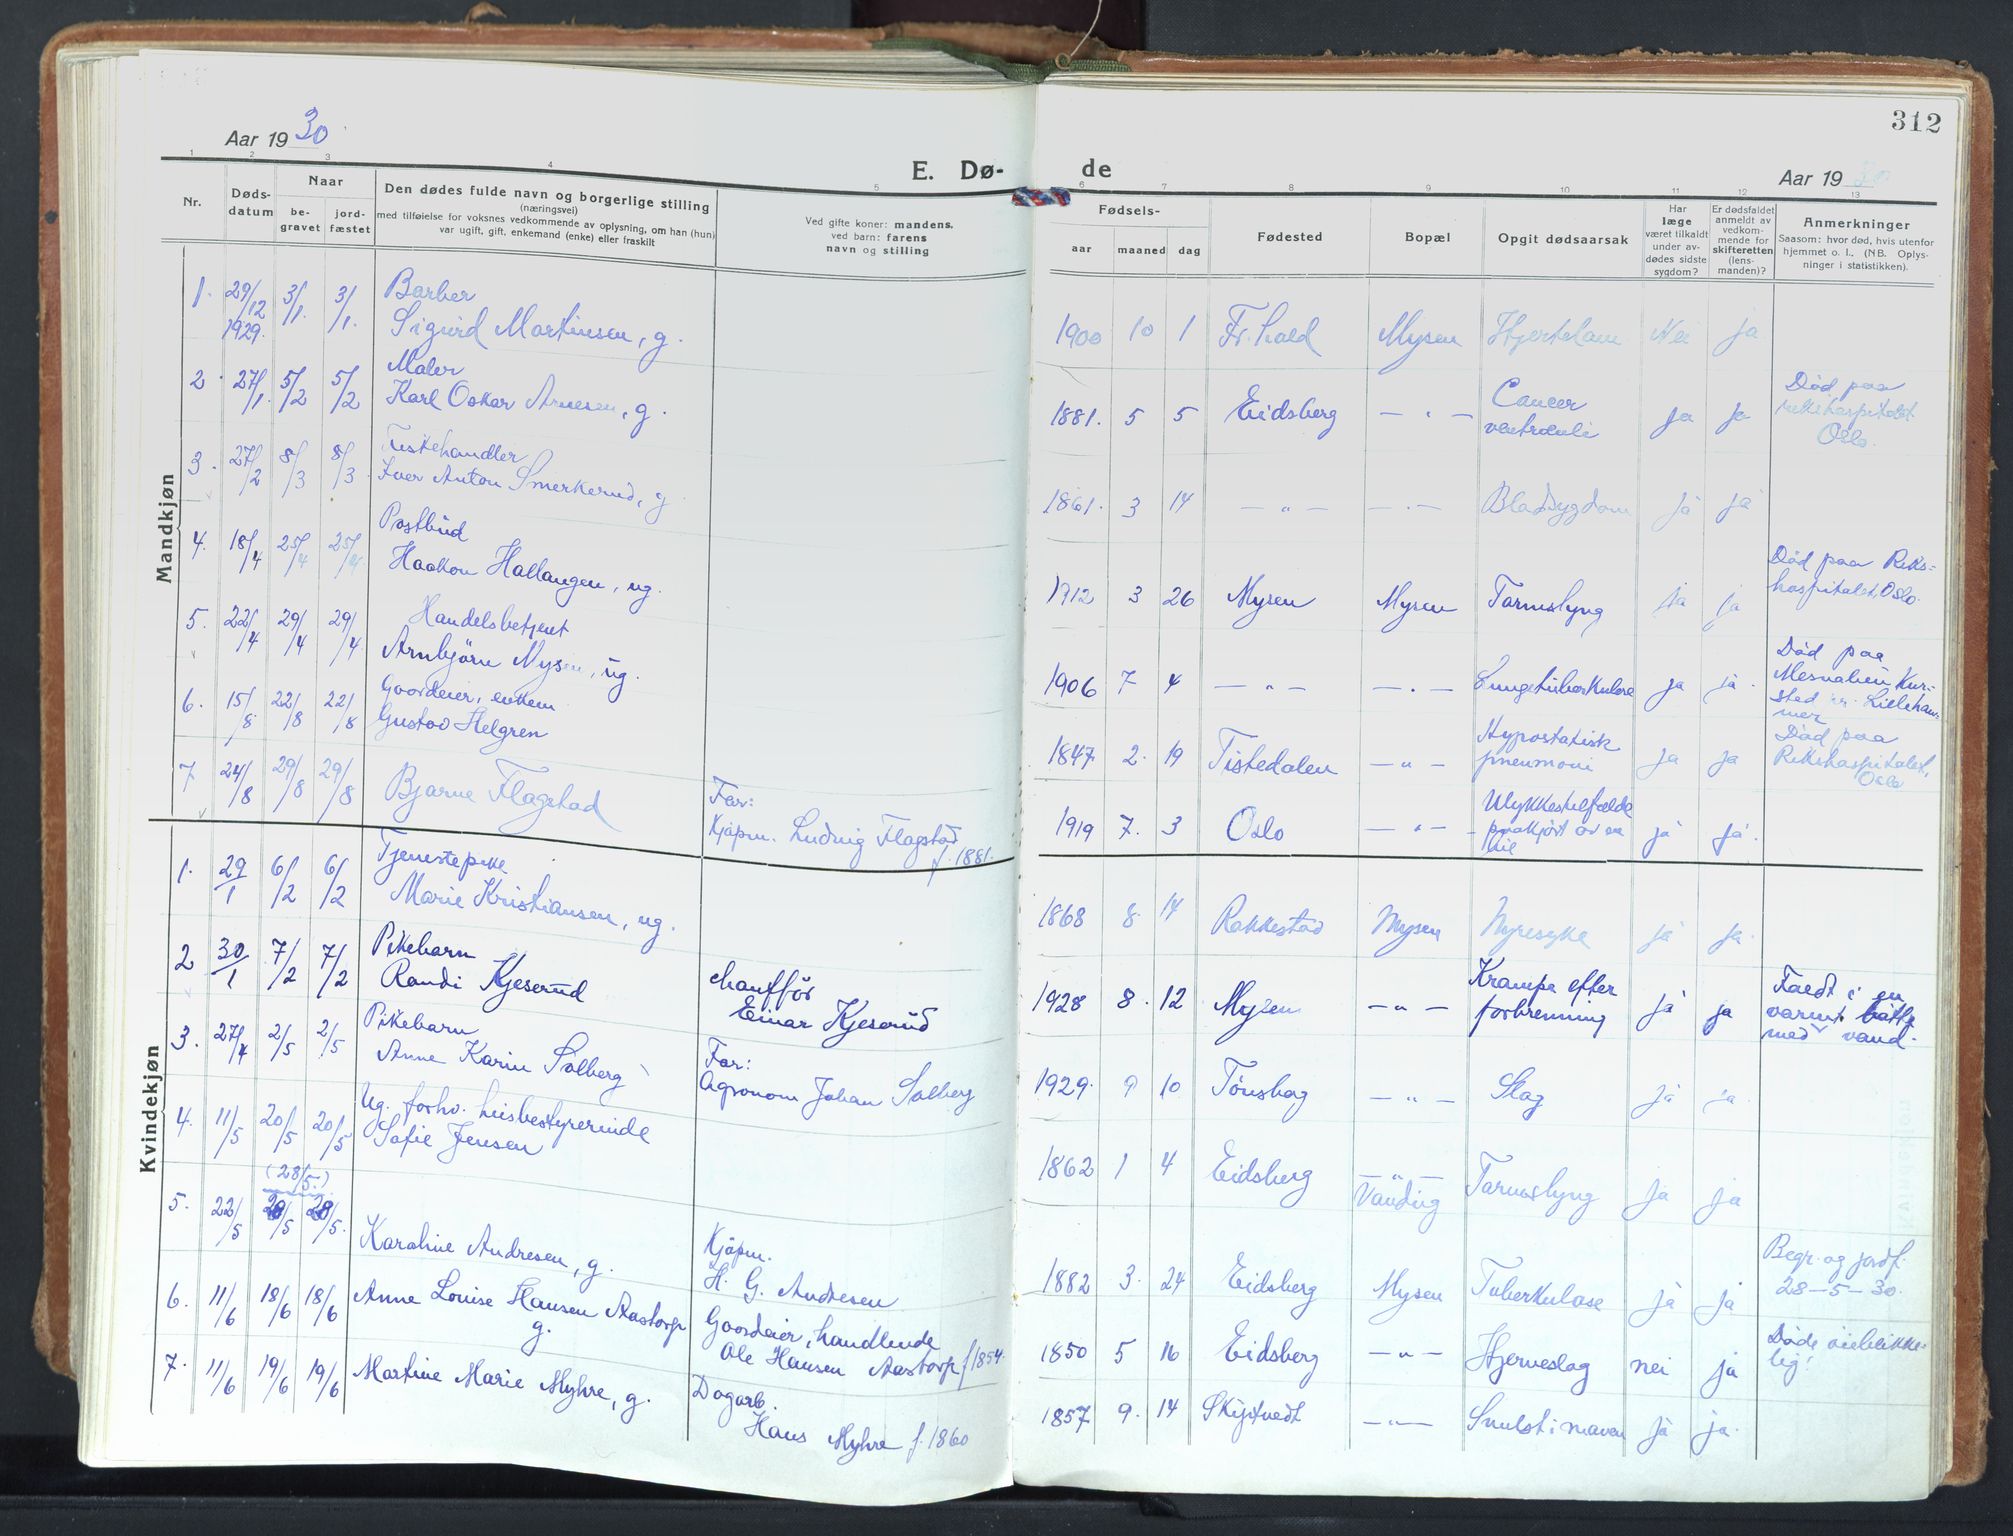 312
Aar 1930
E. Dø- de
Aar 1930
1 2 3 4 5 6 7 8 9 10 11 12 13
Nr.
Døds-
datum
Naar
be-
gravet
jord-
fæstet
Den dødes fulde navn og borgerlige stilling
(næringsvei)
med tilføielse for voksnes vedkommende av oplysning, om han (hun)
var ugift, gift, enkemand (enke) eller fraskilt
Ved gifte koner: mandens.
ved barn: farens
navn og stilling
Fødsels-
aar maaned dag
Fødested
Bopæl
Opgit dødsaarsak
Har
læge
været tilkaldt
under av-
dødes sidste
sygdom?
Er dødsfaldet
anmeldt av
vedkom-
mende for
skifteretten
(lens-
manden)?
Anmerkninger
Saasom: hvor død, hvis utenfor
hjemmet o. l.. (NB. Oplys-
ninger i statistikken).
Mandkjøn
1. 29/12 1929. 3/1. 3/1. Barber
Sigurd Martinsen, g.
1900 10 1 Fr.hald Mysen Hjertelam. Nei ja
2. 27/1. 5/2 5/2 Maler
Karl Oskar Arnesen, g.
1881. 5 5 Eidsberg — " — Cancer
ventriculi ja ja Död paa
rikshospitalet
Oslo.
3. 27/2 8/3 8/3 Fiskehandler
Iver Anton Smerkerud, g
1861. 3 14 — " — — " — Blodsygdom ja ja
4. 18/4 25/4 25/4 Postbud
Haakon Hallangen, ug.
1912 3 26 Mysen Mysen Tarmslyng ja ja Död paa Riks-
hospitalet, Oslo.
5. 22/4 29/4 29/4 Handelsbetjent
Arnbjörn Mysen, ug.
1906 7 4 — " — — " — Lungetuberkulose ja ja. Död paa
Mesnalien Kur-
sted pr. Lilleham-
mer
6. 15/8 22/8 22/8 Gaardeier, enkem
Gustav Helgren
1847 2. 19 Tistedalen — " — Hypostatisk
pneumoni ja ja Död paa
Rikshospitalet,
Oslo
7 24/8 29/8 29/8 Bjarne Flagstad Far:
Kjöpm. Ludvig Flagstad
f. 1881.
1919 7. 3 Oslo — " — Ulykkestilfælde
paakjört av en
bil ja ja.
Kvindekjøn
1. 29/1 6/2 6/2 Tjenestepike
Marie Kristiansen, ug.
1868 8. 14 Rakkestad Mysen Nyresyke ja ja.
2 30/1 7/2 7/2 Pikebarn
Randi Kjeserud chafför
Einar Kjeserud
1928 8. 12 Mysen — " — Krampe efter
forbrenning ja ja Faldt i en
varmt bötte
med vand.
3. 27/4 2/5 2/5 Pikebarn
Anne Karin Solberg Far:
Agronom Johan Solberg
1929. 9 10 Tönsbag — " — Slag ja ja.
4. 11/5 20/5 20/5 Ug. forhv. husbestyrerinde
Sofie Jensen
1862 1 4 Eidsberg — " — Tarmslyng ja ja
(28/5.)
5. 22/5 28/5 28/5. Karoline Andresen, g. Kjöpm.
H. G. Andresen
1882 3. 24 Eidsberg Mysen Tuberkulose ja ja Begr. og jordf.
28-5-30.
6. 11/6 18/6 18/6 Anne Louise Hansen Aastorp
g. Gaardeier, handlende
Ole Hansen Aastorp f 1854.
1850 5 16 Eidsberg — " — Hjerneslag nei ja Döde öieblikke-
lig!
7. 11/6 19/6 19/6 Martine Marie Myhre, g. Dagarb.
Hans Myhre f. 1860
1857 9. 14 Skiptvedt — " — Svulst i maven ja ja.